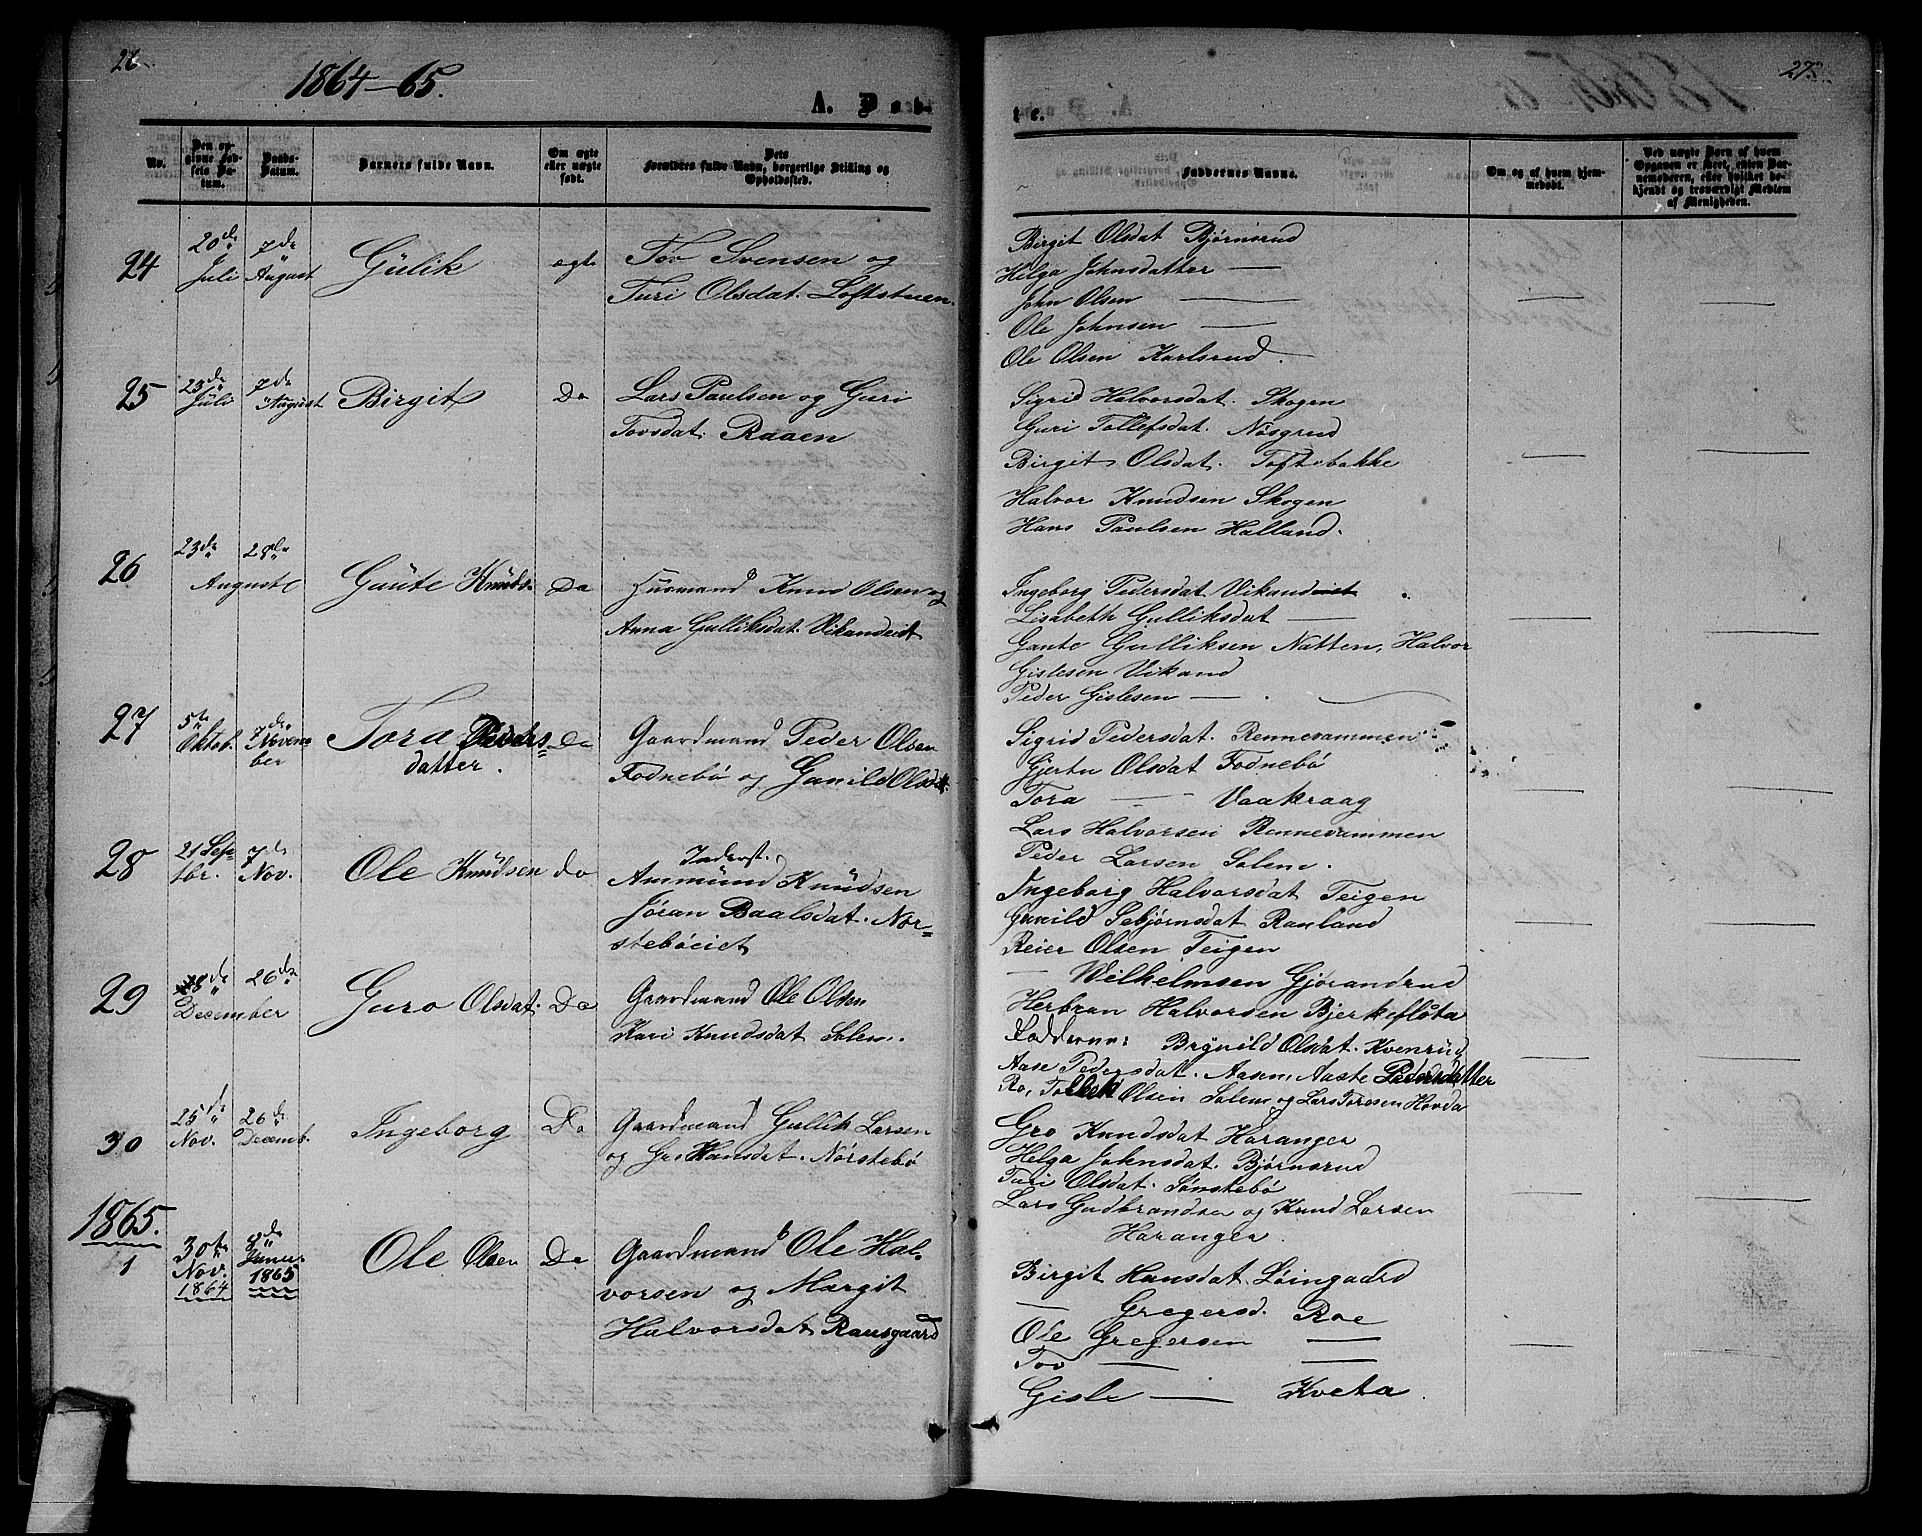 26.
1864-65.
A. Dåb-
No.
Den op-
givne Fød-
sels Da-
tum.
Daabs-
Datum.
Barnets fulde Navn.
Om ægte
eller uægte
født.
Dets
Forældres fulde Navn, borgerlige Stilling og
Opholdssted.
24
20de Juli
7de August
Gülik
egte
Tov Svensen og
Turi Olsdat. Loftstuen.
25
23de Juli
7de August
Birgit
Do
Lars Paulsen og Guri
Tovsdat. Raaen
26
23de 28de
August
Gaüte Knüds.
Do
Husmand Knud Olsen og
Anna Gulliksdat. Vikandeiet
27
5te Oktob.
7de Novem-
ber
Tora Peders-
datter.
Do
Gaardmand Peder Olsen
Fodnebö og Gunild Olsdat.
28
21 Sep-
tbr.
7de Nov.
Ole Knüdsen
do
Inderst.
Ammünd Knüdsen
Jöran Baalsdat. Nör-
stebøeiet
29
8de 26de
December
Guro Olsdat.
Do
Gaardmand Ole Olsen
Kari Knudsdat Solem.
30
25de Nov.
26de Decemb.
Ingeborg
Do
Gaardmand Gullik Larsen
og Gro Hansdat. Nörstebö
1865.
1
30te
Nov.
1864
8de
Januar
1865
Ole Olsen
Do
Gaardmand Ole Hal-
vorsen og Margit
Halvorsdat Ransgaard
27.
te.
Faddernes Navne.
Om og af hvem hjem-
medøbt.
Ved uægte Børn af hvem
Opgaven er skeet, enten Bar-
nemoderen, eller hvilket be-
kjendt og troværdigt Medlem
af Menigheden.
Birgit Olsdat Bjørnsrud
Helga Johnsdatter —
John Olsen —
Ole Johnsen —
Ole Olsen Karlsrud.
Sigrid Halvorsdat. Skogen
Guri Tollefsdat. Nøsgrud
Birgit Olsdat. Toftebakke
Halvor Knudsen Skogen
Hans Paulsen Halland.
Ingeborg Pedersdat Vikandeiet
Lisabeth Gulliksdat —
Gaute Gulliksen Natten, Halvor
Gislesen Vikand
Peder Gislesen —
Sigrid Pedersdat. Rennedammen
Gjertru Olsdat Fodnebö
Tora — Vaakraag
Lars Halvorsen Rennedammen
Peder Larsen Solem.
Ingeborg Halvorsdat Teigen
Gunild Sebjørnsdat Ranland
Reier Olsen Teigen
— Wilhelmsen Gjörandrud
Herbran Halvorsen Bjerkeflöta
Fadderne: Brynild Olsdat. Kvenrüd
Aase Pedersdat. Aasen, Aaste Pedersdatter
Ro, Tollek Olsen Solem og Lars Toresen Hovda
Gro Knudsdat Haranger
Helga Johnsdat. Bjørnsrud
Turi Olsdat. Sönstebö
Lars Gudbrandsen og Knud Larsen
Haranger.
Birgit Hansdat. Löingaard
— Gregersd. Roe
Ole Gregersen —
Tov — —
Gisle — Kveta.